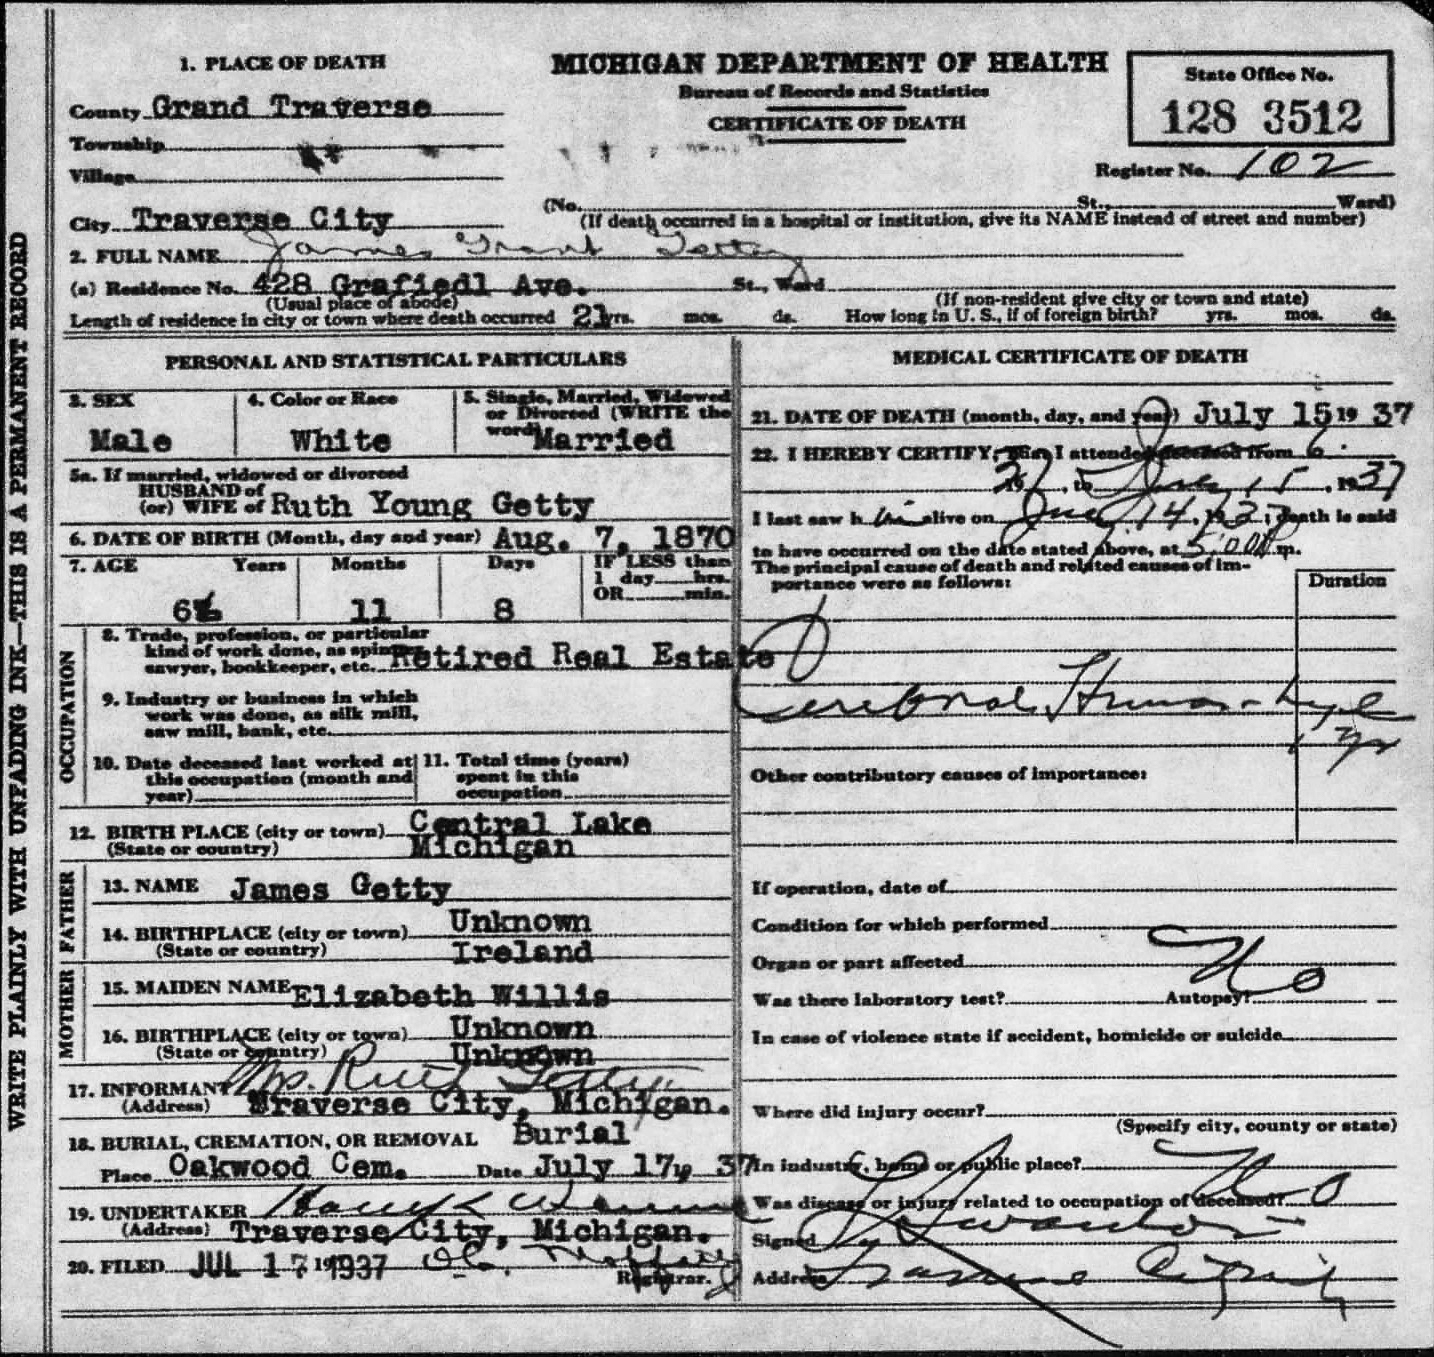 WRITE PLAINLY WITH UNFADING INK—THIS IS A PERMANENT RECORD
1. PLACE OF DEATH
County Grand Traverse
Township
Village
City Traverse City
MICHIGAN DEPARTMENT OF HEALTH
Bureau of Records and Statistics
CERTIFICATE OF DEATH
State Office No.
128 3512
Register No. 102
(No. St., Ward)
(If death occurred in a hospital or institution, give its NAME instead of street and number)
2. FULL NAME James Grant Getty
(a) Residence No. 428 Grafiedl Ave. St., Ward
(Usual place of abode) (If non-resident give city or town and state)
Length of residence in city or town where death occurred 21 yrs. mos. ds. How long in U. S., if of foreign birth? yrs. mos. ds.
PERSONAL AND STATISTICAL PARTICULARS
3. SEX
Male
4. Color or Race
White
5. Single, Married, Widowed
or Divorced (WRITE the
word) Married
5a. If married, widowed or divorced
HUSBAND of
(or) WIFE of Ruth Young Getty
6. DATE OF BIRTH (Month, day and year) Aug. 7, 1870
7. AGE Years Months Days IF LESS than
1 day hrs.
OR min.
66 11 8
OCCUPATION
8. Trade, profession, or particular
kind of work done, as spinner,
sawyer, bookkeeper, etc. Retired Real Estate
9. Industry or business in which
work was done, as silk mill,
saw mill, bank, etc.
10. Date deceased last worked at
this occupation (month and
year)
11. Total time (years)
spent in this
occupation
12. BIRTH PLACE (city or town) Central Lake
(State or country) Michigan
FATHER
13. NAME James Getty
14. BIRTHPLACE (city or town) Unknown
(State or country) Ireland
MOTHER
15. MAIDEN NAME Elizabeth Willis
16. BIRTHPLACE (city or town) Unknown
(State or country) Unknown
17. INFORMANT Mrs. Ruth Getty
(Address) Traverse City, Michigan.
18. BURIAL, CREMATION, OR REMOVAL Burial
Place Oakwood Cem. Date July 17, 37
19. UNDERTAKER
(Address) Traverse City, Michigan.
20. FILED JUL 17 1937
Registrar.
MEDICAL CERTIFICATE OF DEATH
21. DATE OF DEATH (month, day, and year) July 15 19 37
22. I HEREBY CERTIFY, That I attended deceased from
37, to 15, 1937
I last saw him alive on 14, 1937; death is said
to have occurred on the date stated above, at 5:00 P m.
The principal cause of death and related causes of im-
portance were as follows:
Duration
Cerebral
Other contributory causes of importance:
If operation, date of
Condition for which performed
Organ or part affected
Was there laboratory test? Autopsy? No
In case of violence state if accident, homicide or suicide
Where did injury occur?
(Specify city, county or state)
In industry, home or public place?
Was disease or injury related to occupation of deceased? No
Signed
Address Traverse City